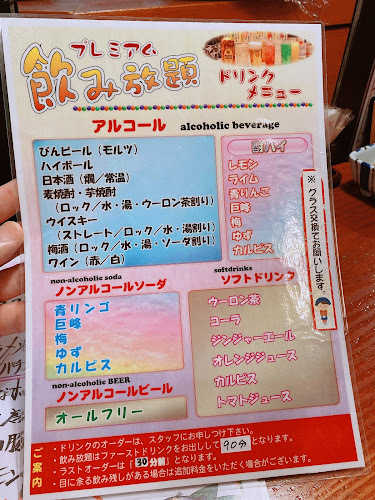 プレミアム
飲み放題
ドリンク
メニュー
アルコール alcoholic beverage
びんビール（モルツ）
ハイボール
日本酒（燗／常温）
麦焼酎・芋焼酎
（ロック／水・湯・ウーロン茶割り）
ウイスキー
（ストレート／ロック／水・湯割り）
梅酒（ロック／水・湯・ソーダ割り）
ワイン（赤／白）
酎ハイ
レモン
ライム
青りんご
巨峰
梅
ゆず
カルピス
※グラス交換でお願いします。
non-alcoholic soda
ノンアルコールソーダ
青リンゴ
巨峰
梅
ゆず
カルピス
non-alcoholic BEER
ノンアルコールビール
オールフリー
softdrinks
ソフトドリンク
ウーロン茶
コーラ
ジンジャーエール
オレンジジュース
カルピス
トマトジュース
ご案内
・ドリンクのオーダーは、スタッフにお申しつけ下さい。
・飲み放題はファーストドリンクをお出しして90分となります。
・ラストオーダーは「30分前」となります。
・目に余る飲み残しがある場合は追加料金をいただく場合がございます。